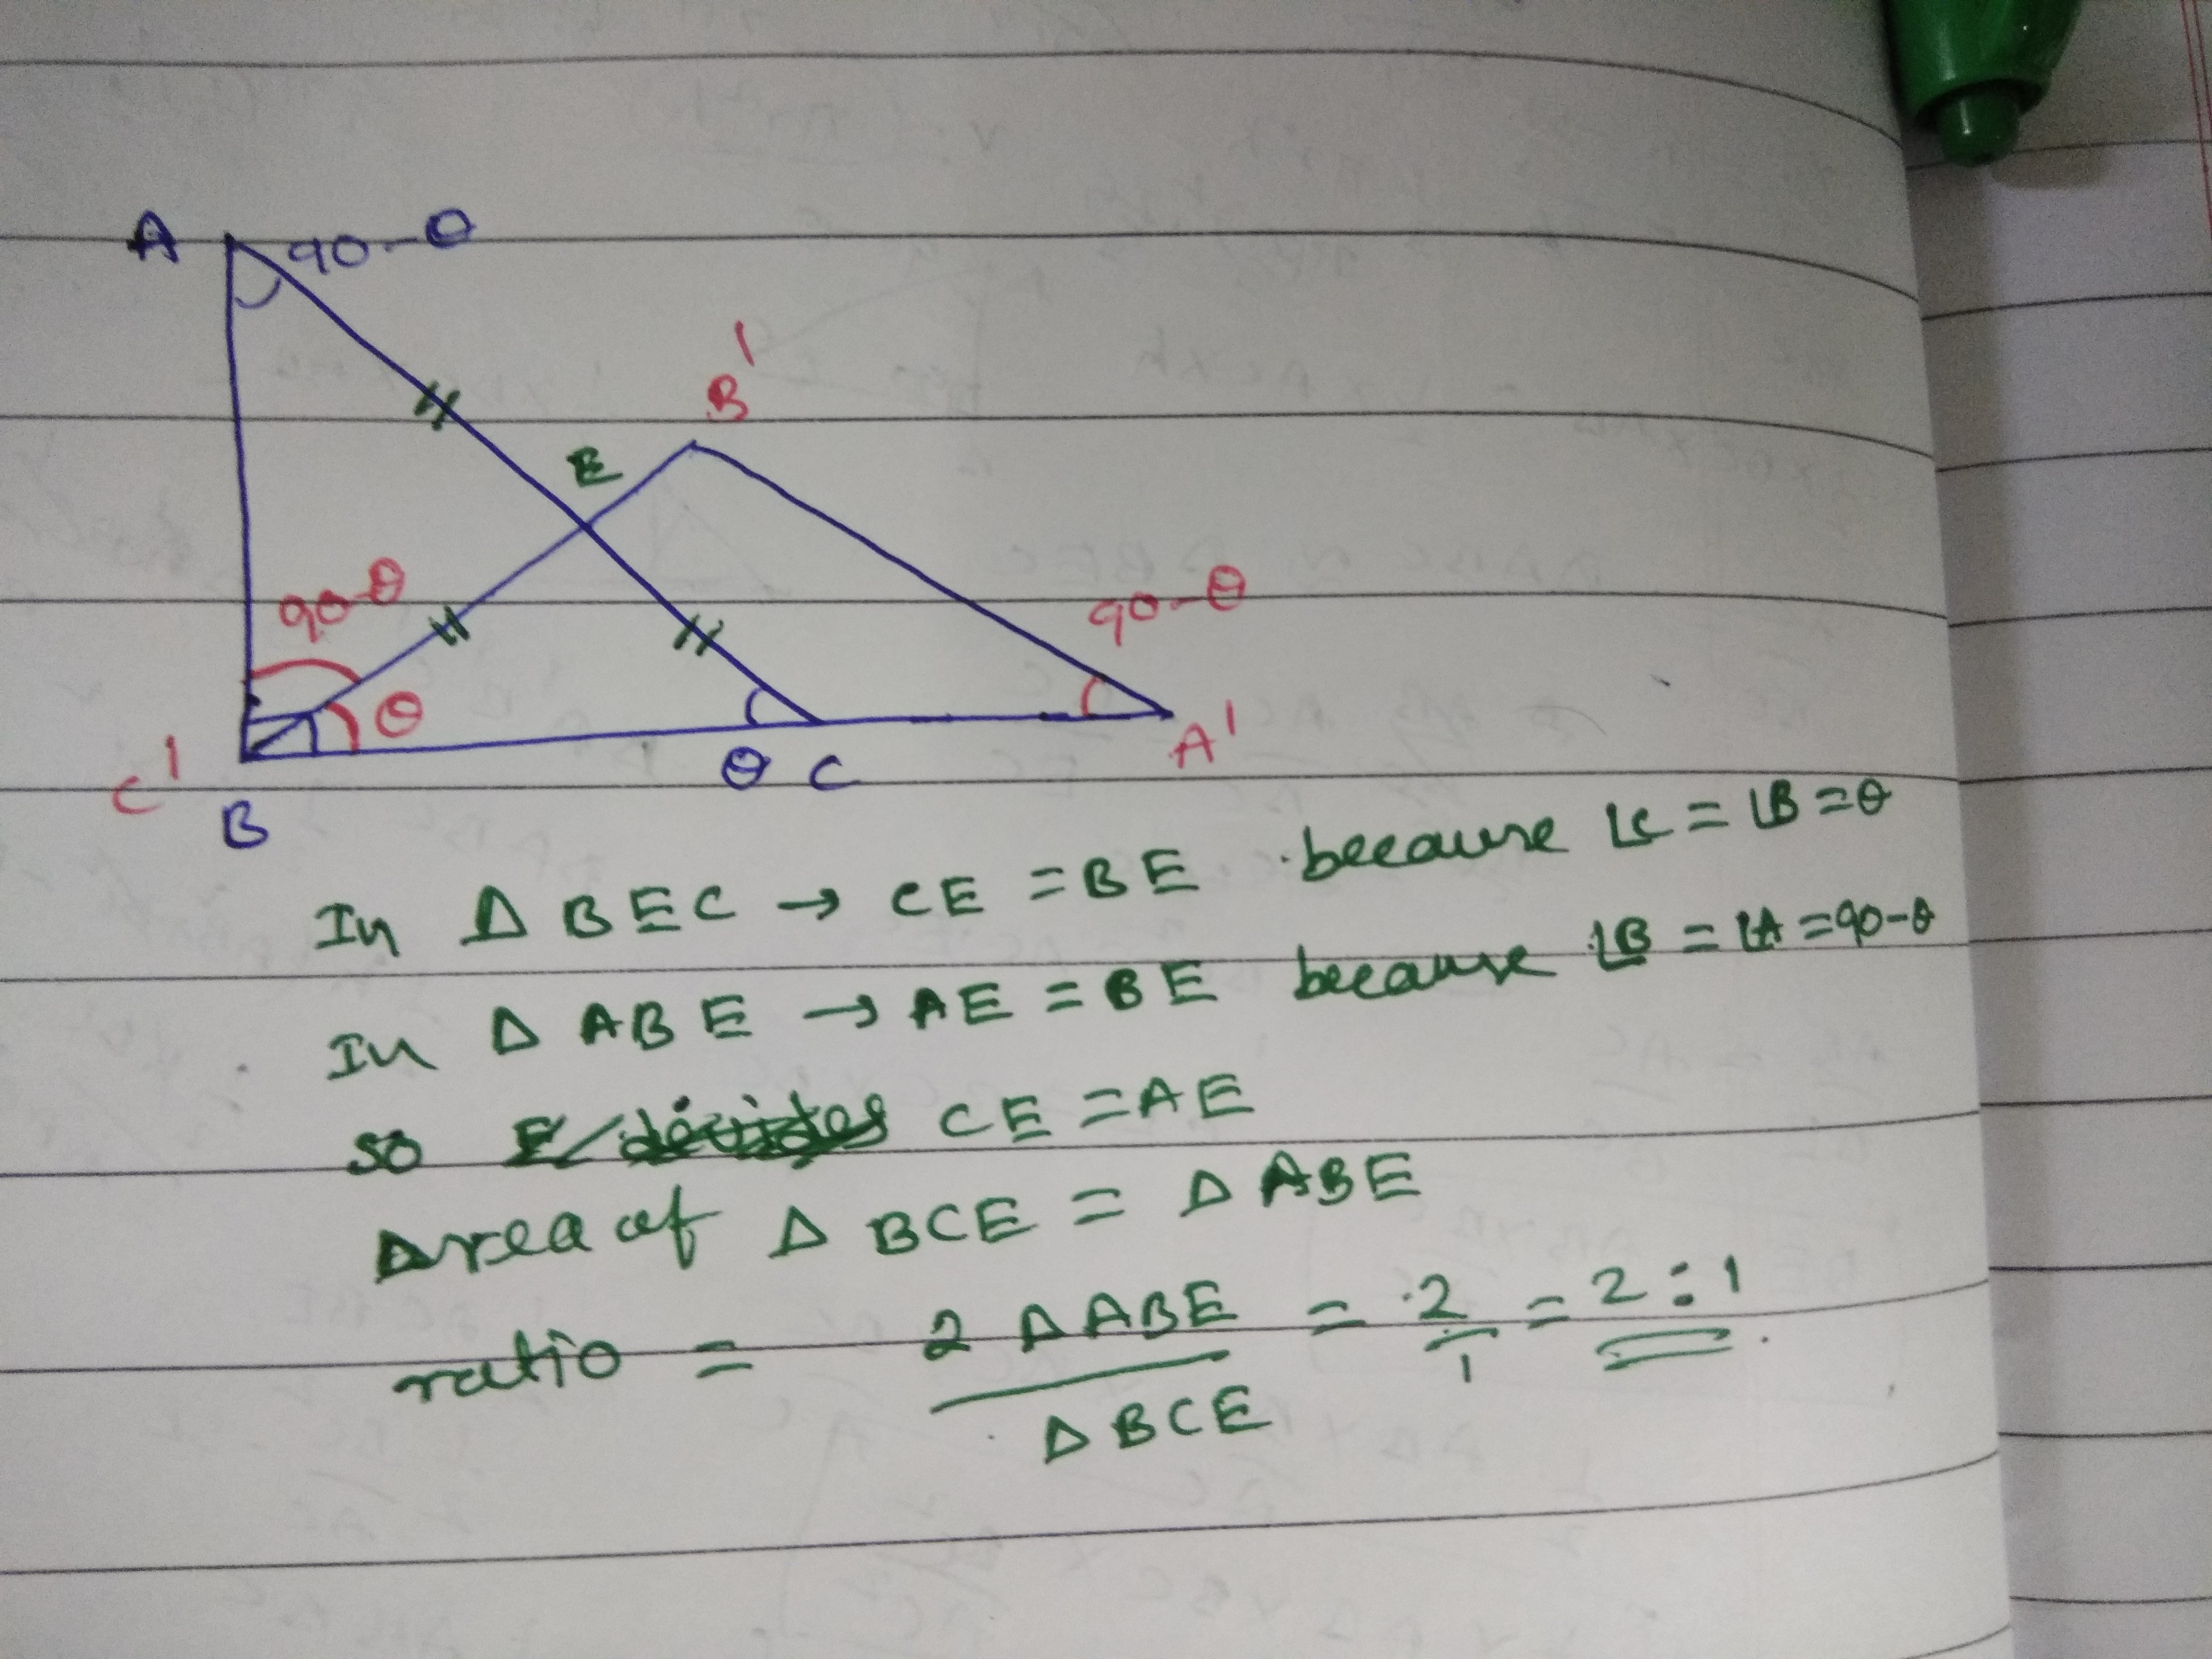 A 90-θ
B'
E
90-θ
90-θ
θ
C' θ C A'
B
In Δ BEC → CE = BE because ∠C = ∠B = θ
In Δ ABE → AE = BE because ∠B = ∠A = 90-θ
so CE = AE
Area of Δ BCE = Δ ABE
ratio = 2 Δ ABE / Δ BCE = 2/1 = 2:1